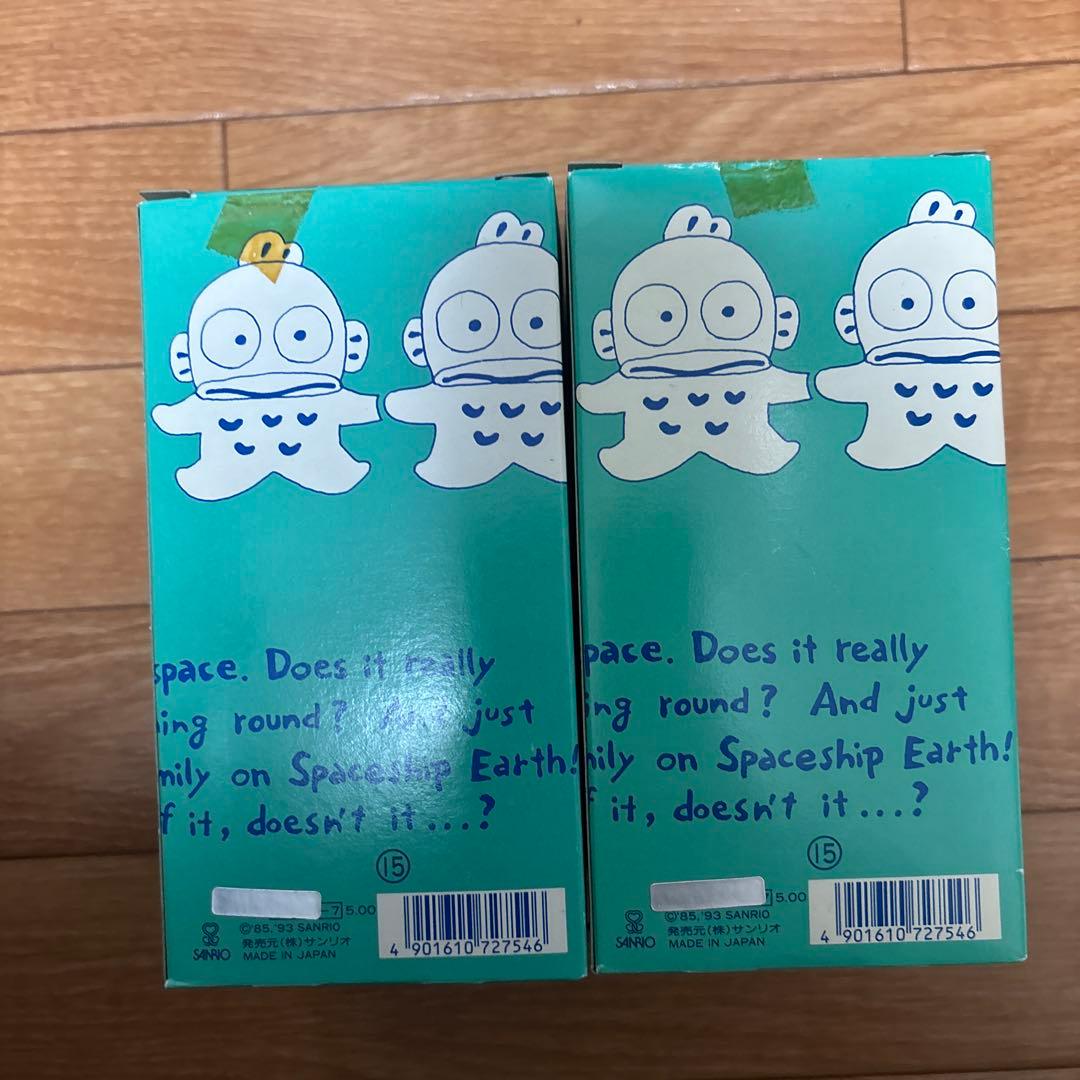 space. Does it really
ing round? And just
mily on Spaceship Earth!
f it, doesn't it...?
⑮
-7 5.00
©'85,'93 SANRIO
発売元(株)サンリオ
MADE IN JAPAN
SANRIO
4 901610 727546
pace. Does it really
ing round? And just
ily on Spaceship Earth!
f it, doesn't it...?
⑮
7 5.00
©'85,'93 SANRIO
発売元(株)サンリオ
MADE IN JAPAN
SANRIO
4 901610 727546